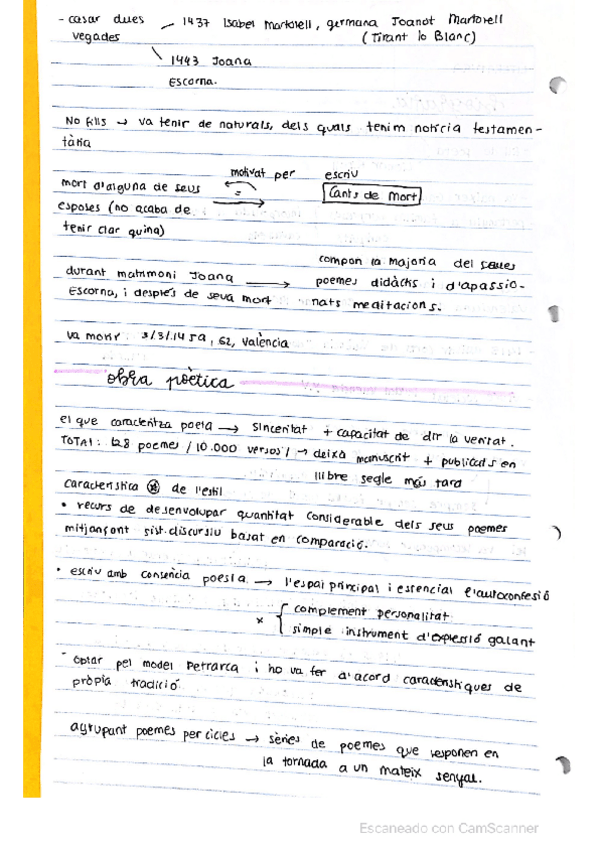 - casar dues 1437 Isabel Martorell, germana Joanot Martorell
vegades (Tirant lo Blanc)
1443 Joana
Escorna.
No fills → va tenir de naturals, dels quals tenim notícia testamen-
tària
motivat per escriu
mort d'alguna de seus = Cants de Mort
esposes (no acaba de
tenir clar quina)
compon la majoria del seues
durant matrimoni Joana → poemes didàctis i d'apassio-
Escorna, i després de seva mort nats meditacions.
va morir: 3/3/1459, 62, València
obra poètica
el que caracteritza poeta → sinceritat + capacitat de dir la veritat.
TOTAL: 128 poemes / 10.000 versos / → deixà manuscrit + publicats en
llibre segle més tard
característica de l'estil
• recurs de desenvolupar quantitat considerable dels seus poemes
mitjançont sist. discursiu basat en comparació.
• escriu amb consència poesia → l'espai principal i essencial l'autoconfesió
x { complement personalitat
simple instrument d'expressió galant
- optar pel model Petrarca i ho va fer d'acord característiques de
pròpia tradició
agrupant poemes per cicles → sèries de poemes que responen en
la tornada a un mateix senyal.
Escaneado con CamScanner